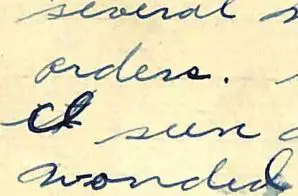 several
orders.
I seen
wonded